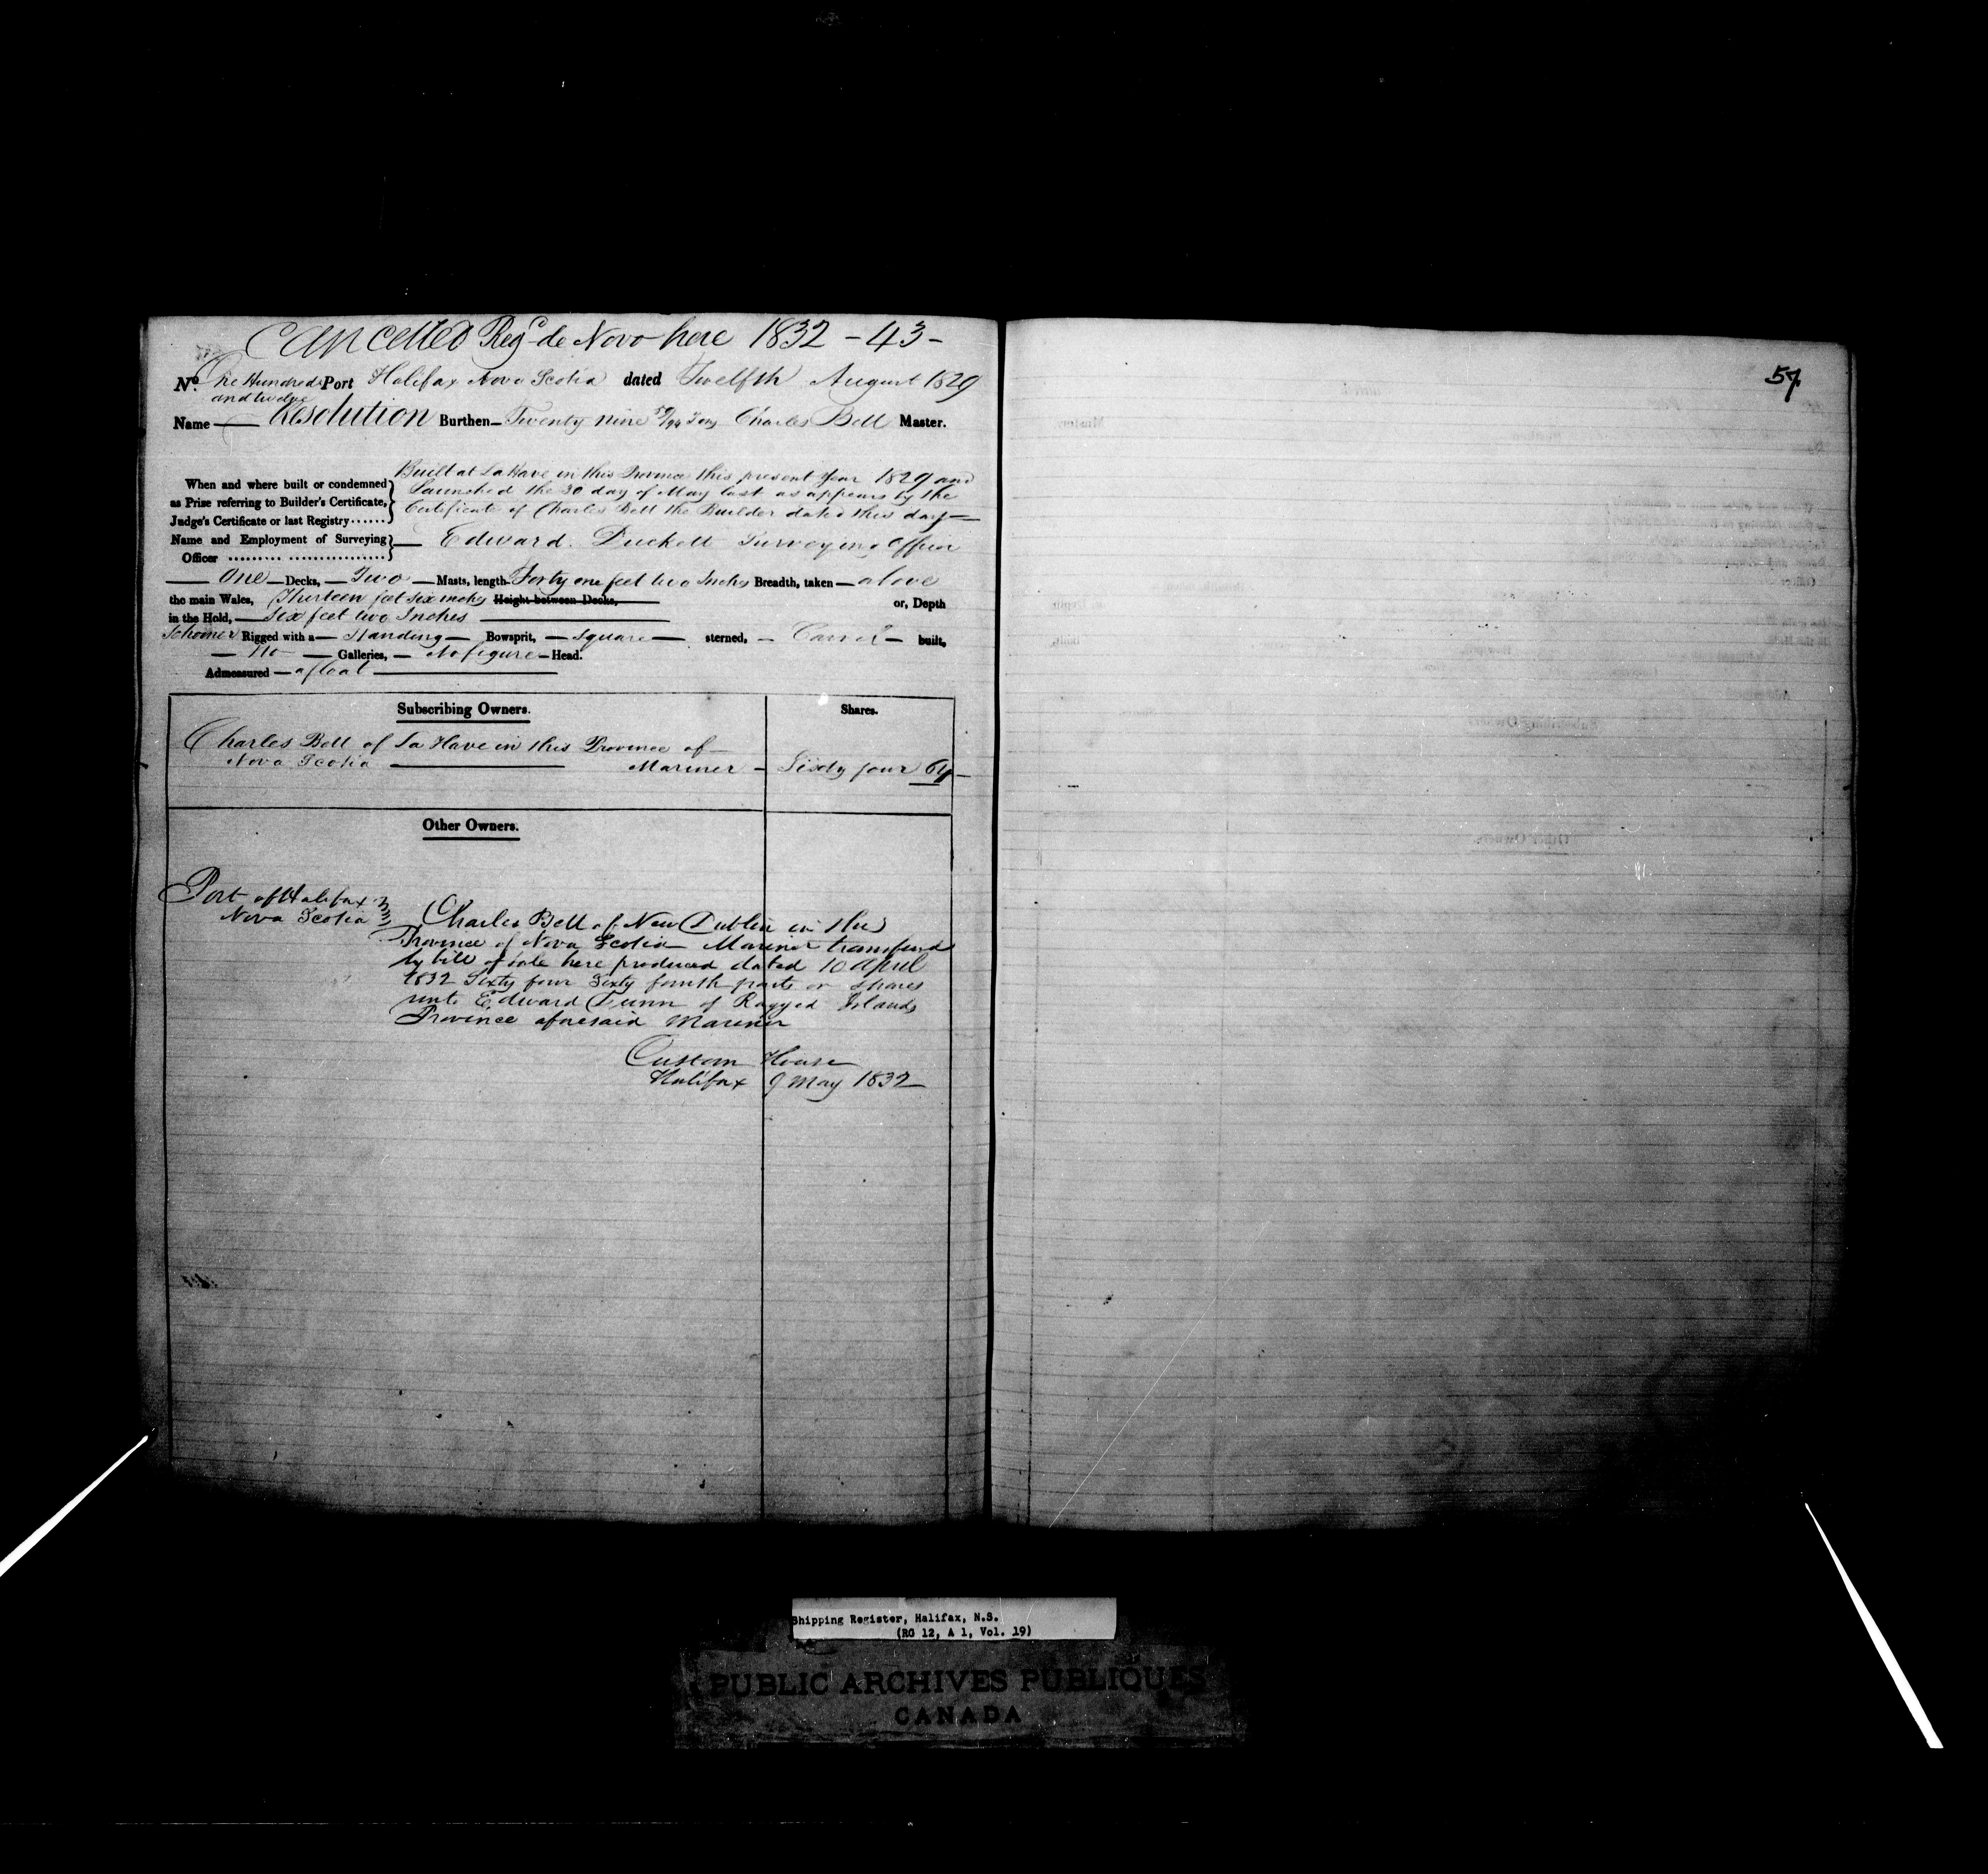 Cancelled Regd de Novo here 1832 - 43 -
No. One Hundred Port Halifax Nova Scotia dated Twelfth August 1829
and twelve
Name Resolution Burthen Twenty nine 59/94 Tons Charles Bell Master.
Built at La Have in this Province this present Year 1829 and
When and where built or condemned
Launched the 30 day of May last as appears by the
as Prize referring to Builder's Certificate,
Certificate of Charles Bell the Builder dated this day
Judge's Certificate or last Registry......
Name and Employment of Surveying
Edward Duckett Surveying Officer
Officer
One Decks, Two Masts, length Forty one feet two Inches Breadth, taken above
the main Wales, Thirteen feet six inches Height between Decks, or, Depth
in the Hold, Six feet two Inches
Schooner Rigged with a Standing Bowsprit, square sterned, Carvel built,
No Galleries, No figure Head.
Admeasured afloat
Subscribing Owners. Shares.
Charles Bell of La Have in this Province of
Nova Scotia Mariner Sixty four 64
Other Owners.
Port of Halifax
Nova Scotia
Charles Bell of New Dublin in the
Province of Nova Scotia Mariner transferred
by bill of sale here produced dated 10 April
1832 Sixty four Sixty fourth parts or shares
unto Edward of Ragged Islands
Province aforesaid Mariner
Custom House
Halifax 9 May 1832
57
Shipping Register, Halifax, N.S.
(RG 12, A 1, Vol. 19)
PUBLIC ARCHIVES PUBLIQUES
CANADA